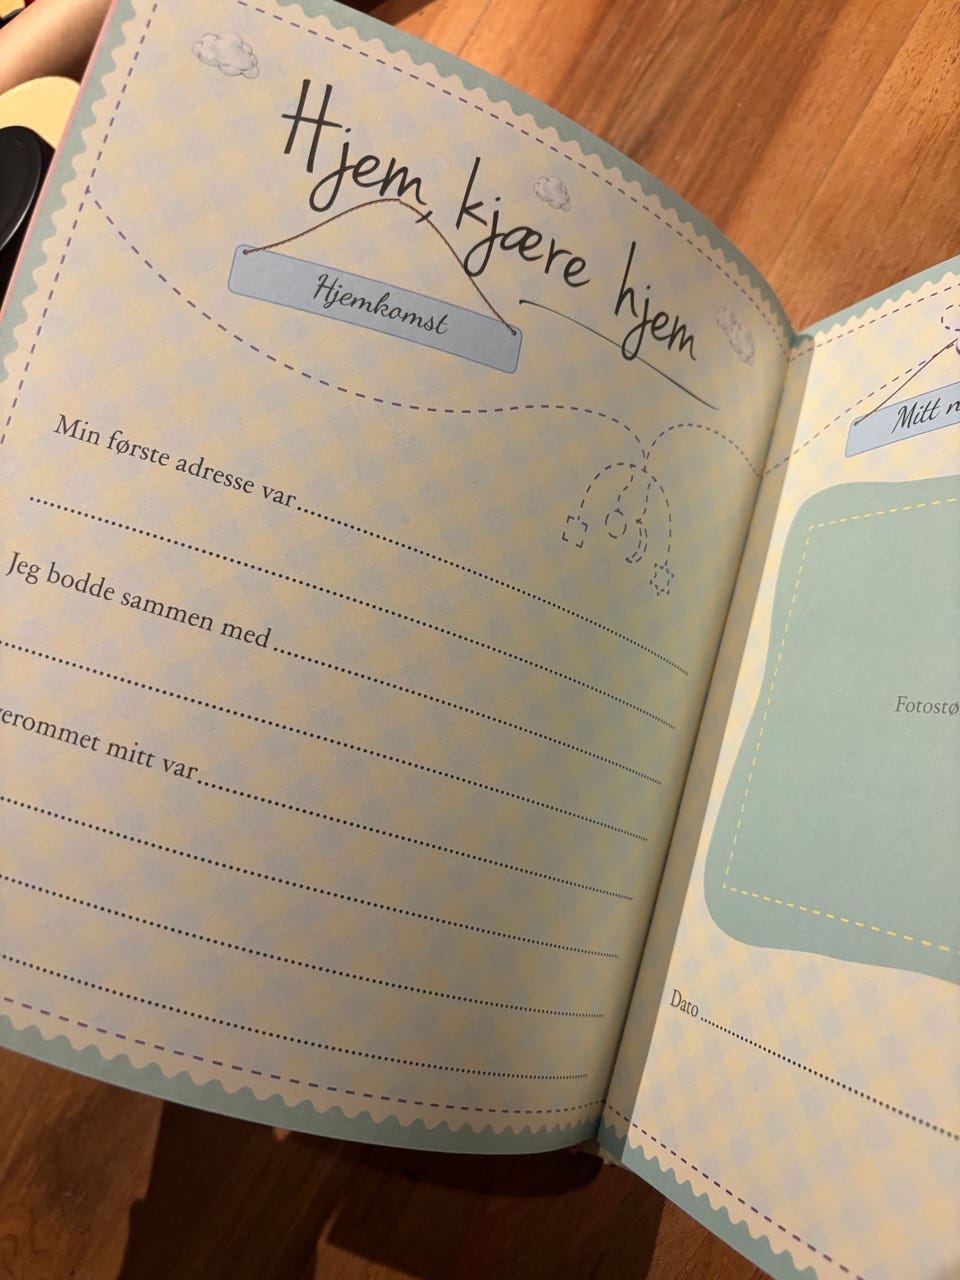 Hjem, kjære hjem
Hjemkomst
Min første adresse var
Jeg bodde sammen med
mitt var
Mitt
Dato